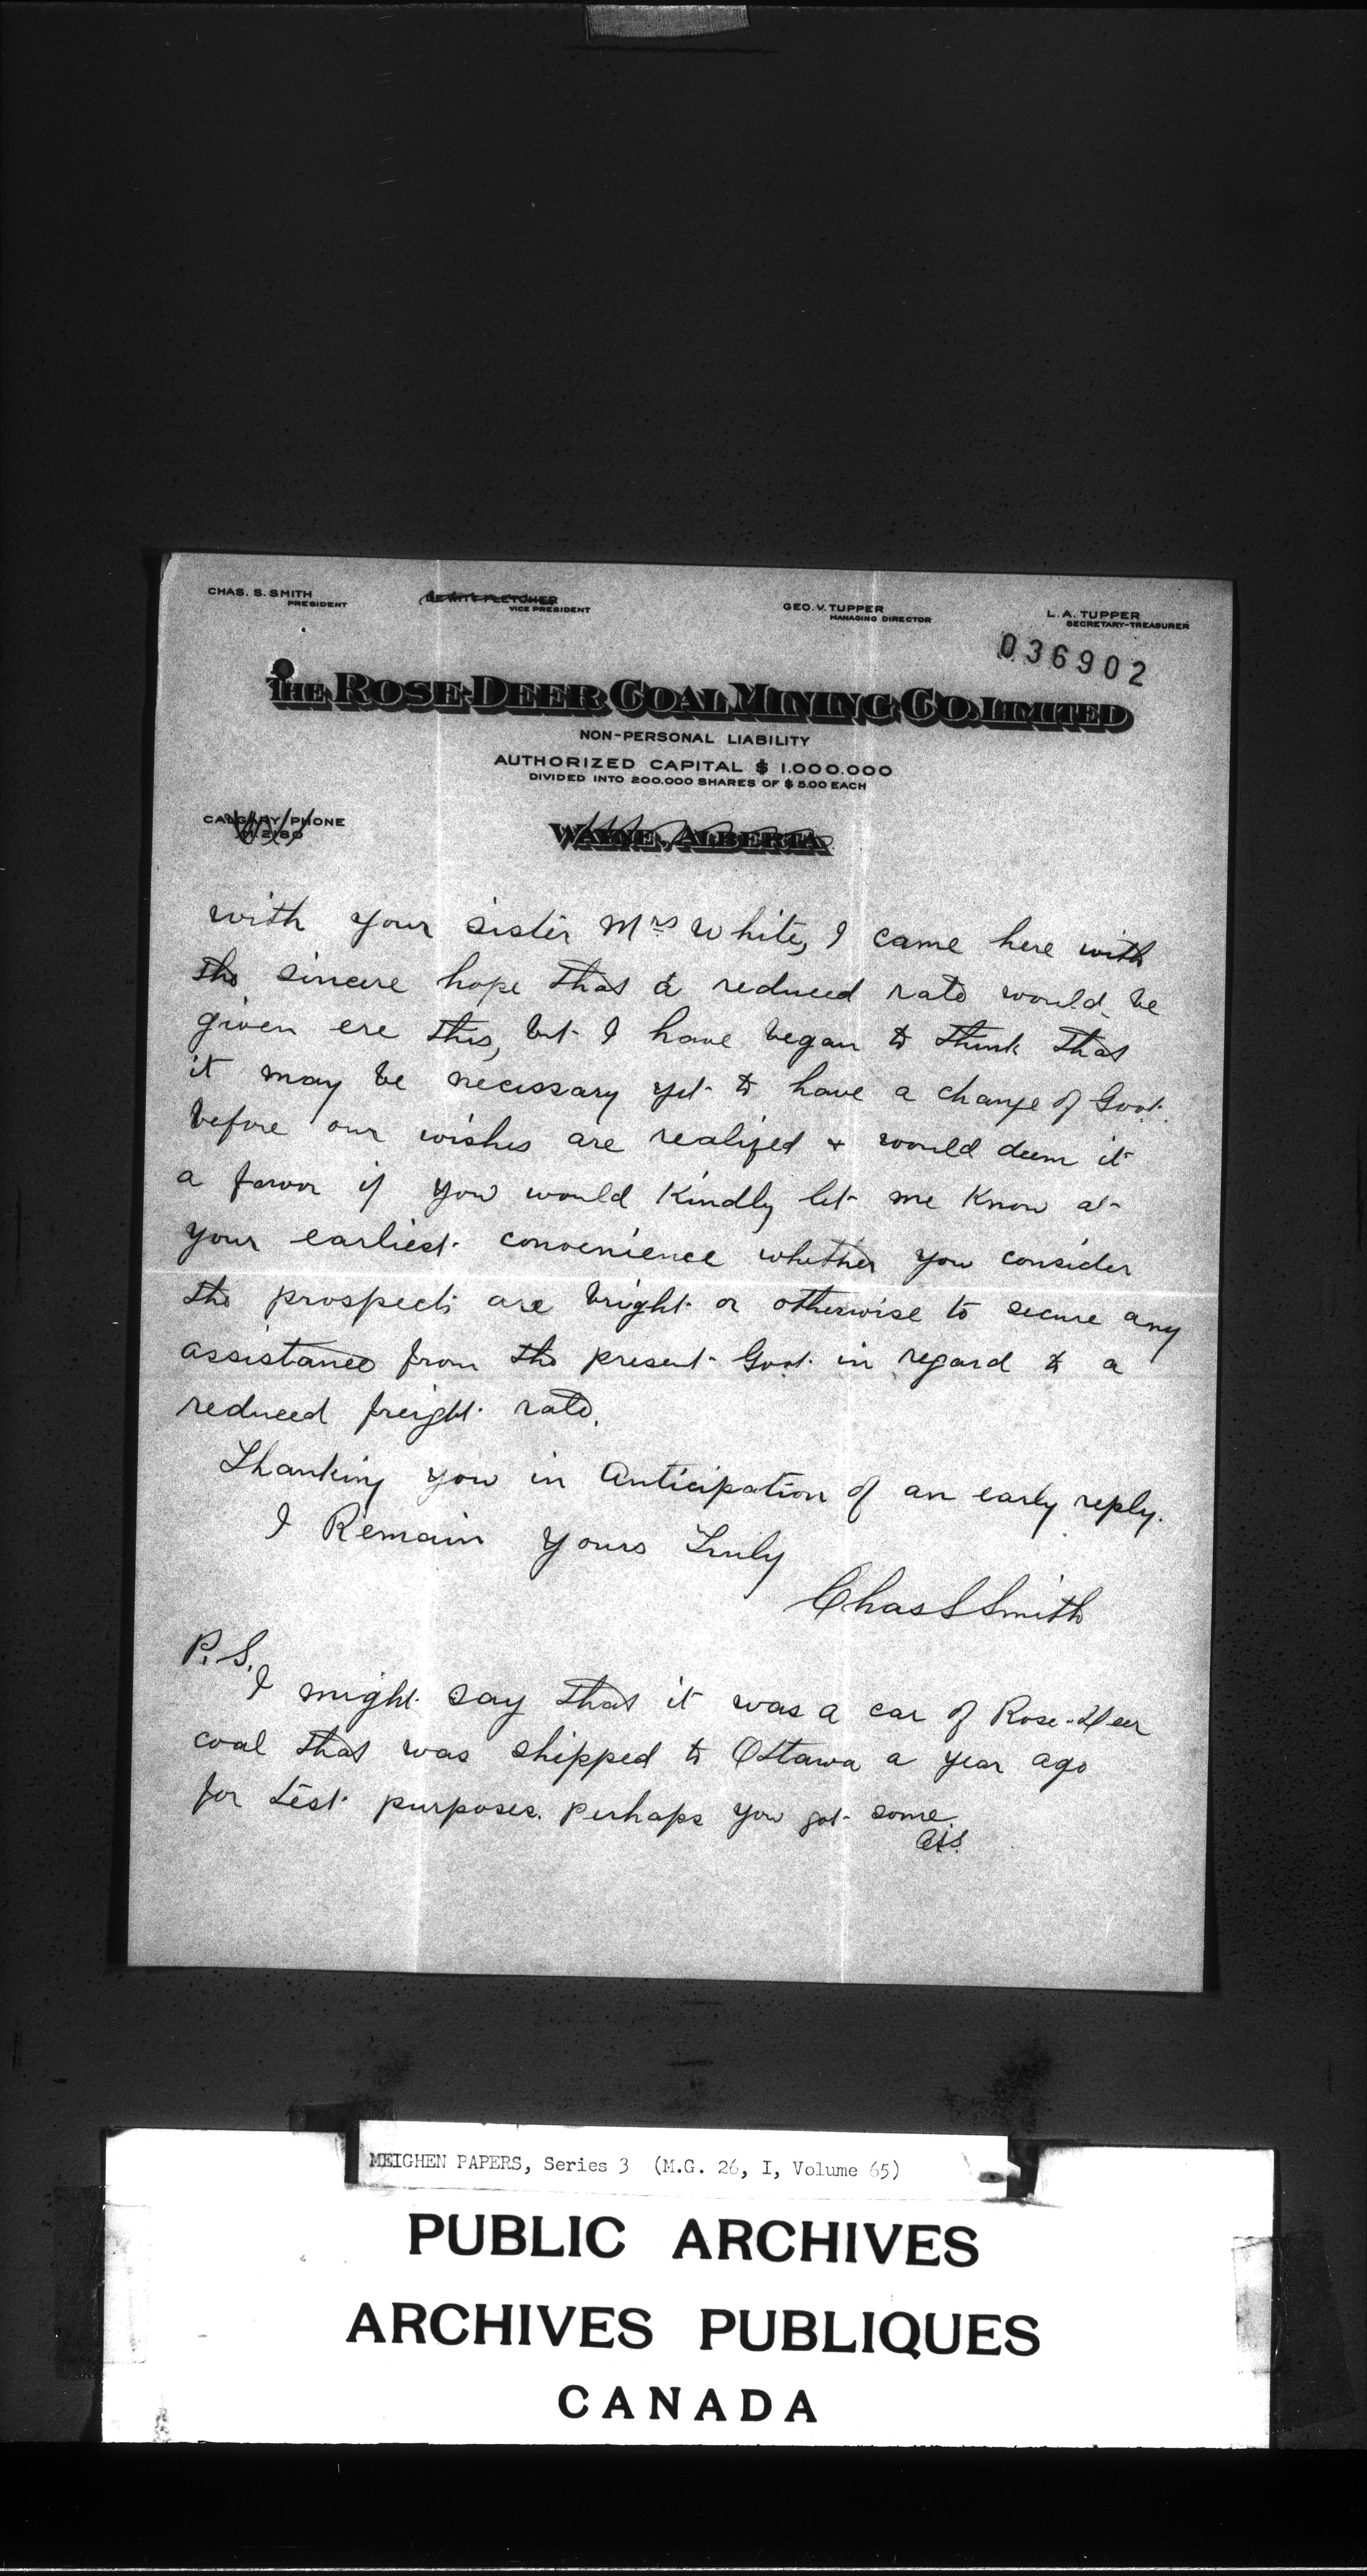 CHAS. S. SMITH
PRESIDENT
DEWITT FLETCHER
VICE PRESIDENT
GEO. V. TUPPER
MANAGING DIRECTOR
L. A. TUPPER
SECRETARY-TREASURER
036902
THE ROSE-DEER COAL MINING CO. LIMITED
NON-PERSONAL LIABILITY
AUTHORIZED CAPITAL $ 1.000.000
DIVIDED INTO 200.000 SHARES OF $ 5.00 EACH
CALGARY PHONE
M.2180
WAYNE, ALBERTA
with your sister Mrs White, I came here with
the sincere hope that a reduced rate would be
given ere this, but I have began to think that
it may be necessary yet to have a change of Govt.
before our wishes are realized & would deem it
a favor if you would Kindly let me Know at
your earliest convenience whether you consider
the prospects are bright or otherwise to secure any
assistance from the present Govt. in regard to a
reduced freight rate.
Thanking you in Anticipation of an early reply.
I Remain Yours Truly
Chas S Smith
P.S.
I might say that it was a car of Rose-Deer
coal that was shipped to Ottawa a year ago
for test purposes. Perhaps you got some.
CSS.
MEIGHEN PAPERS, Series 3 (M.G. 26, I, Volume 65)
PUBLIC ARCHIVES
ARCHIVES PUBLIQUES
CANADA